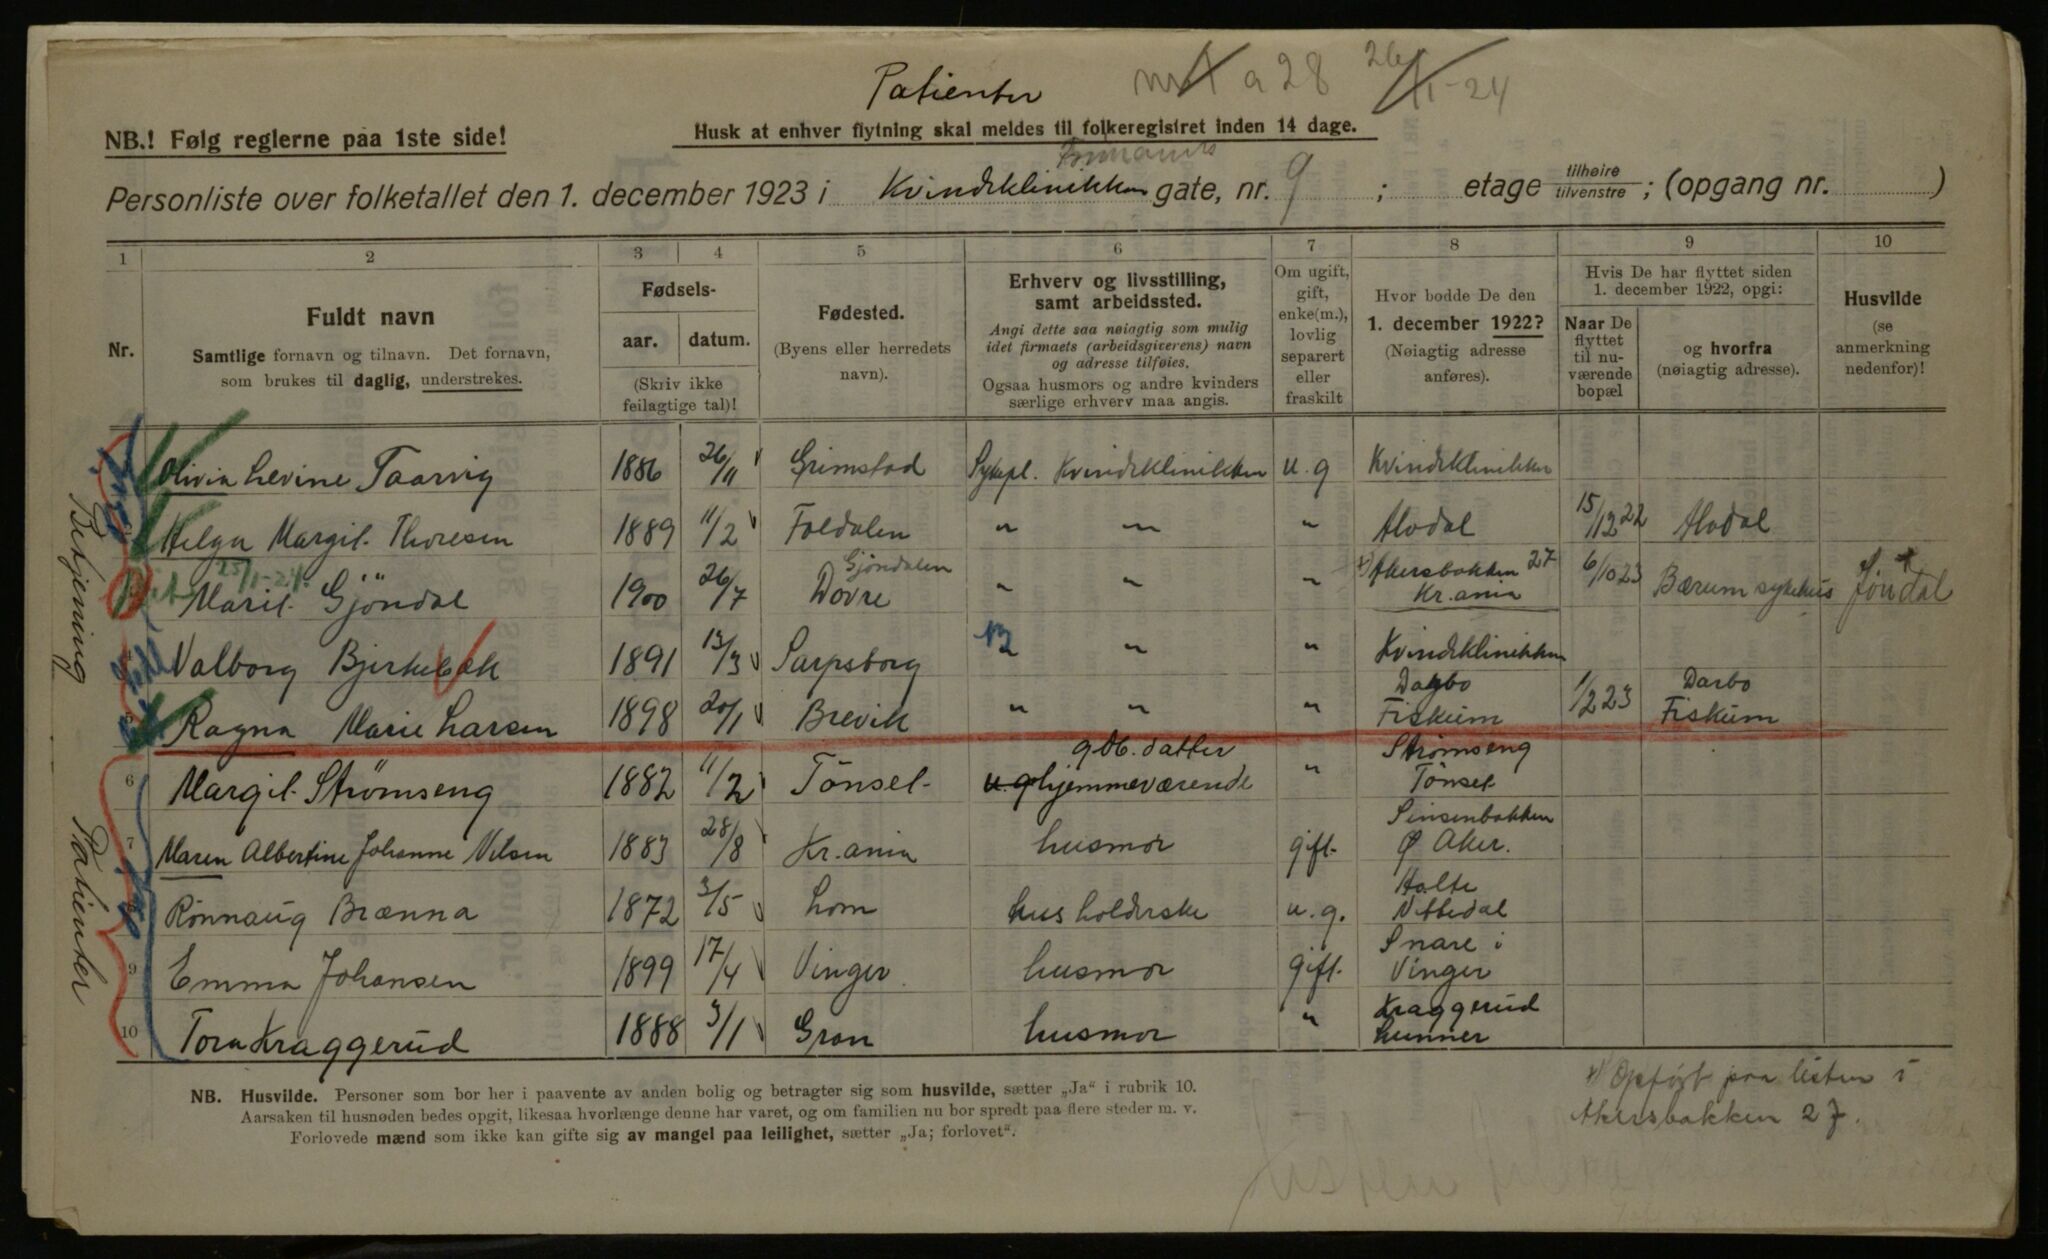 Patienter a 28 26/11-24
NB.! Følg reglerne paa 1ste side!
Husk at enhver flytning skal meldes til folkeregistret inden 14 dage.
Personliste over folketallet den 1. december 1923 i Kvindeklinikken gate, nr. 9 ; etage tilhøire/tilvenstre ; (opgang nr. )
1 2 3 4 5 6 7 8 9 10
Nr.
Fuldt navn
Samtlige fornavn og tilnavn. Det fornavn,
som brukes til daglig, understrekes.
Fødsels-
aar. datum.
(Skriv ikke
feilagtige tal)!
Fødested.
(Byens eller herredets
navn).
Erhverv og livsstilling,
samt arbeidssted.
Angi dette saa nøiagtig som mulig
idet firmaets (arbeidsgiverens) navn
og adresse tilføies.
Ogsaa husmors og andre kvinders
særlige erhverv maa angis.
Om ugift,
gift,
enke(m.),
lovlig
separert
eller
fraskilt
Hvor bodde De den
1. december 1922?
(Nøiagtig adresse
anføres).
Hvis De har flyttet siden
1. december 1922, opgi:
Naar De
flyttet
til nu-
værende
bopæl
og hvorfra
(nøiagtig adresse).
Husvilde
(se
anmerkning
nedenfor)!
Betjening
Olivia Levine Taarvig 1886 26/11 Grimstad Sykepl. Kvindeklinikken u.g Kvindeklinikken
Helga Margit Thoresen 1889 11/2 Foldalen " " " Alvdal 15/12 22 Alvdal
25/1-24
Gjöndalen
Marit Gjöndal 1900 26/7 Dovre " " " x) Akersbakken 27 Kr.ania 6/10 23 Bærum sykehus Jöndal
4 Valborg Bjerkebæk 1891 13/3 Sarpsborg " " Kvindeklinikken
5 Ragna Marie Larsen 1898 20/1 Brevik " " " Darbo Fiskum 1/2 23 Darbo Fiskum
Patienter
6 Margit Strömseng 1882 11/2 Tönset gdb. datter hjemmeværende " Strömseng Tönset
7 Maren Albertine Johanne Nilsen 1883 28/8 Kr.ania husmor gift Sinsenbakken Ø Aker.
8 Rönnaug Brænna 1872 3/5 Lom husholderske u.g. Holte Nittedal
9 Emma Johansen 1899 17/4 Vinger husmor gift Snare i Vinger
10 Tora Kraggerud 1888 3/1 Gran husmor " Kraggerud Lunner
NB. Husvilde. Personer som bor her i paavente av anden bolig og betragter sig som husvilde, sætter „Ja“ i rubrik 10.
Aarsaken til husnøden bedes opgit, likesaa hvorlænge denne har varet, og om familien nu bor spredt paa flere steder m. v.
Forlovede mænd som ikke kan gifte sig av mangel paa leilighet, sætter „Ja; forlovet“.
x) Opført paa listen i
Akersbakken 27.